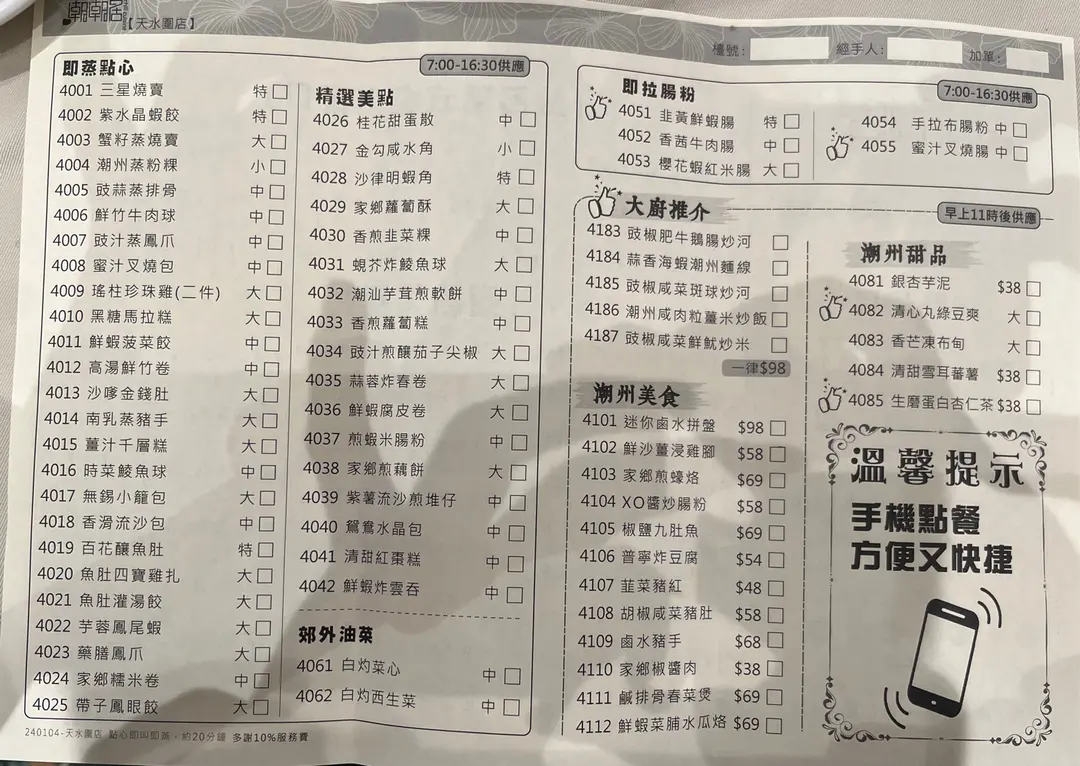 潮潮居【天水圍店】
檯號: 經手人: 加單:
即蒸點心 7:00-16:30供應
4001 三星燒賣 特
4002 紫水晶蝦餃 特
4003 蟹籽蒸燒賣 大
4004 潮州蒸粉粿 小
4005 豉蒜蒸排骨 中
4006 鮮竹牛肉球 中
4007 豉汁蒸鳳爪 中
4008 蜜汁叉燒包 中
4009 瑤柱珍珠雞(二件) 大
4010 黑糖馬拉糕 大
4011 鮮蝦菠菜餃 中
4012 高湯鮮竹卷 中
4013 沙嗲金錢肚 大
4014 南乳蒸豬手 大
4015 薑汁千層糕 大
4016 時菜鯪魚球 中
4017 無錫小籠包 大
4018 香滑流沙包 中
4019 百花釀魚肚 特
4020 魚肚四寶雞扎 大
4021 魚肚灌湯餃 大
4022 芋蓉鳳尾蝦 大
4023 藥膳鳳爪 大
4024 家鄉糯米卷 中
4025 帶子鳳眼餃 大
精選美點
4026 桂花甜蛋散 中
4027 金勾咸水角 小
4028 沙律明蝦角 特
4029 家鄉蘿蔔酥 大
4030 香煎韭菜粿 中
4031 蜆芥炸鯪魚球 大
4032 潮汕芋茸煎軟餅 中
4033 香煎蘿蔔糕 中
4034 豉汁煎釀茄子尖椒 大
4035 蒜蓉炸春卷 大
4036 鮮蝦腐皮卷 大
4037 煎蝦米腸粉 中
4038 家鄉煎藕餅 大
4039 紫薯流沙煎堆仔 中
4040 鴛鴦水晶包 中
4041 清甜紅棗糕 中
4042 鮮蝦炸雲吞 中
郊外油菜
4061 白灼菜心 中
4062 白灼西生菜 中
即拉腸粉 7:00-16:30供應
4051 韭黃鮮蝦腸 特
4052 香茜牛肉腸 中
4053 櫻花蝦紅米腸 大
4054 手拉布腸粉 中
4055 蜜汁叉燒腸 中
大廚推介 早上11時後供應
4183 豉椒肥牛鵝腸炒河
4184 蒜香海蝦潮州麵線
4185 豉椒咸菜斑球炒河
4186 潮州咸肉粒薑米炒飯
4187 豉椒咸菜鮮魷炒米
一律$98
潮州美食
4101 迷你鹵水拼盤 $98
4102 鮮沙薑浸雞腳 $58
4103 家鄉煎蠔烙 $69
4104 XO醬炒腸粉 $58
4105 椒鹽九肚魚 $69
4106 普寧炸豆腐 $54
4107 韮菜豬紅 $48
4108 胡椒咸菜豬肚 $58
4109 鹵水豬手 $68
4110 家鄉椒醬肉 $38
4111 鹹排骨春菜煲 $69
4112 鮮蝦菜脯水瓜烙 $69
潮州甜品
4081 銀杏芋泥 $38
4082 清心丸綠豆爽 大
4083 香芒凍布甸 大
4084 清甜雪耳蕃薯 $38
4085 生磨蛋白杏仁茶 $38
溫馨提示
手機點餐
方便又快捷
240104-天水圍店 點心即叫即蒸，約20分鐘 多謝10%服務費